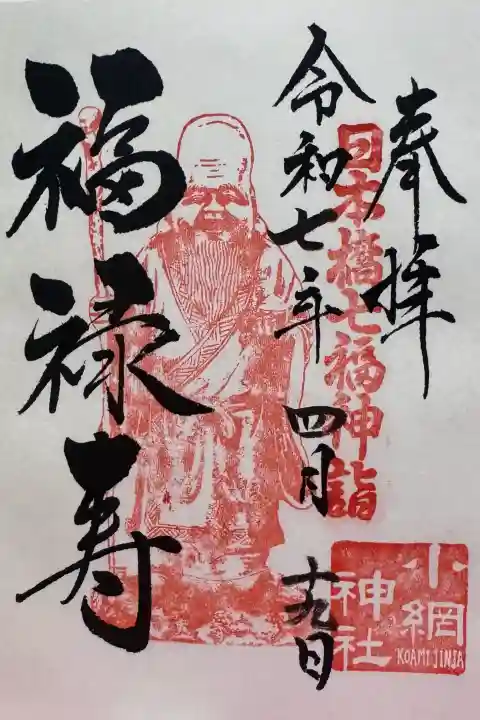 奉拝
日本橋七福神詣
令和七年四月十九日
福禄寿
小網
神社
KOAMI JINJA